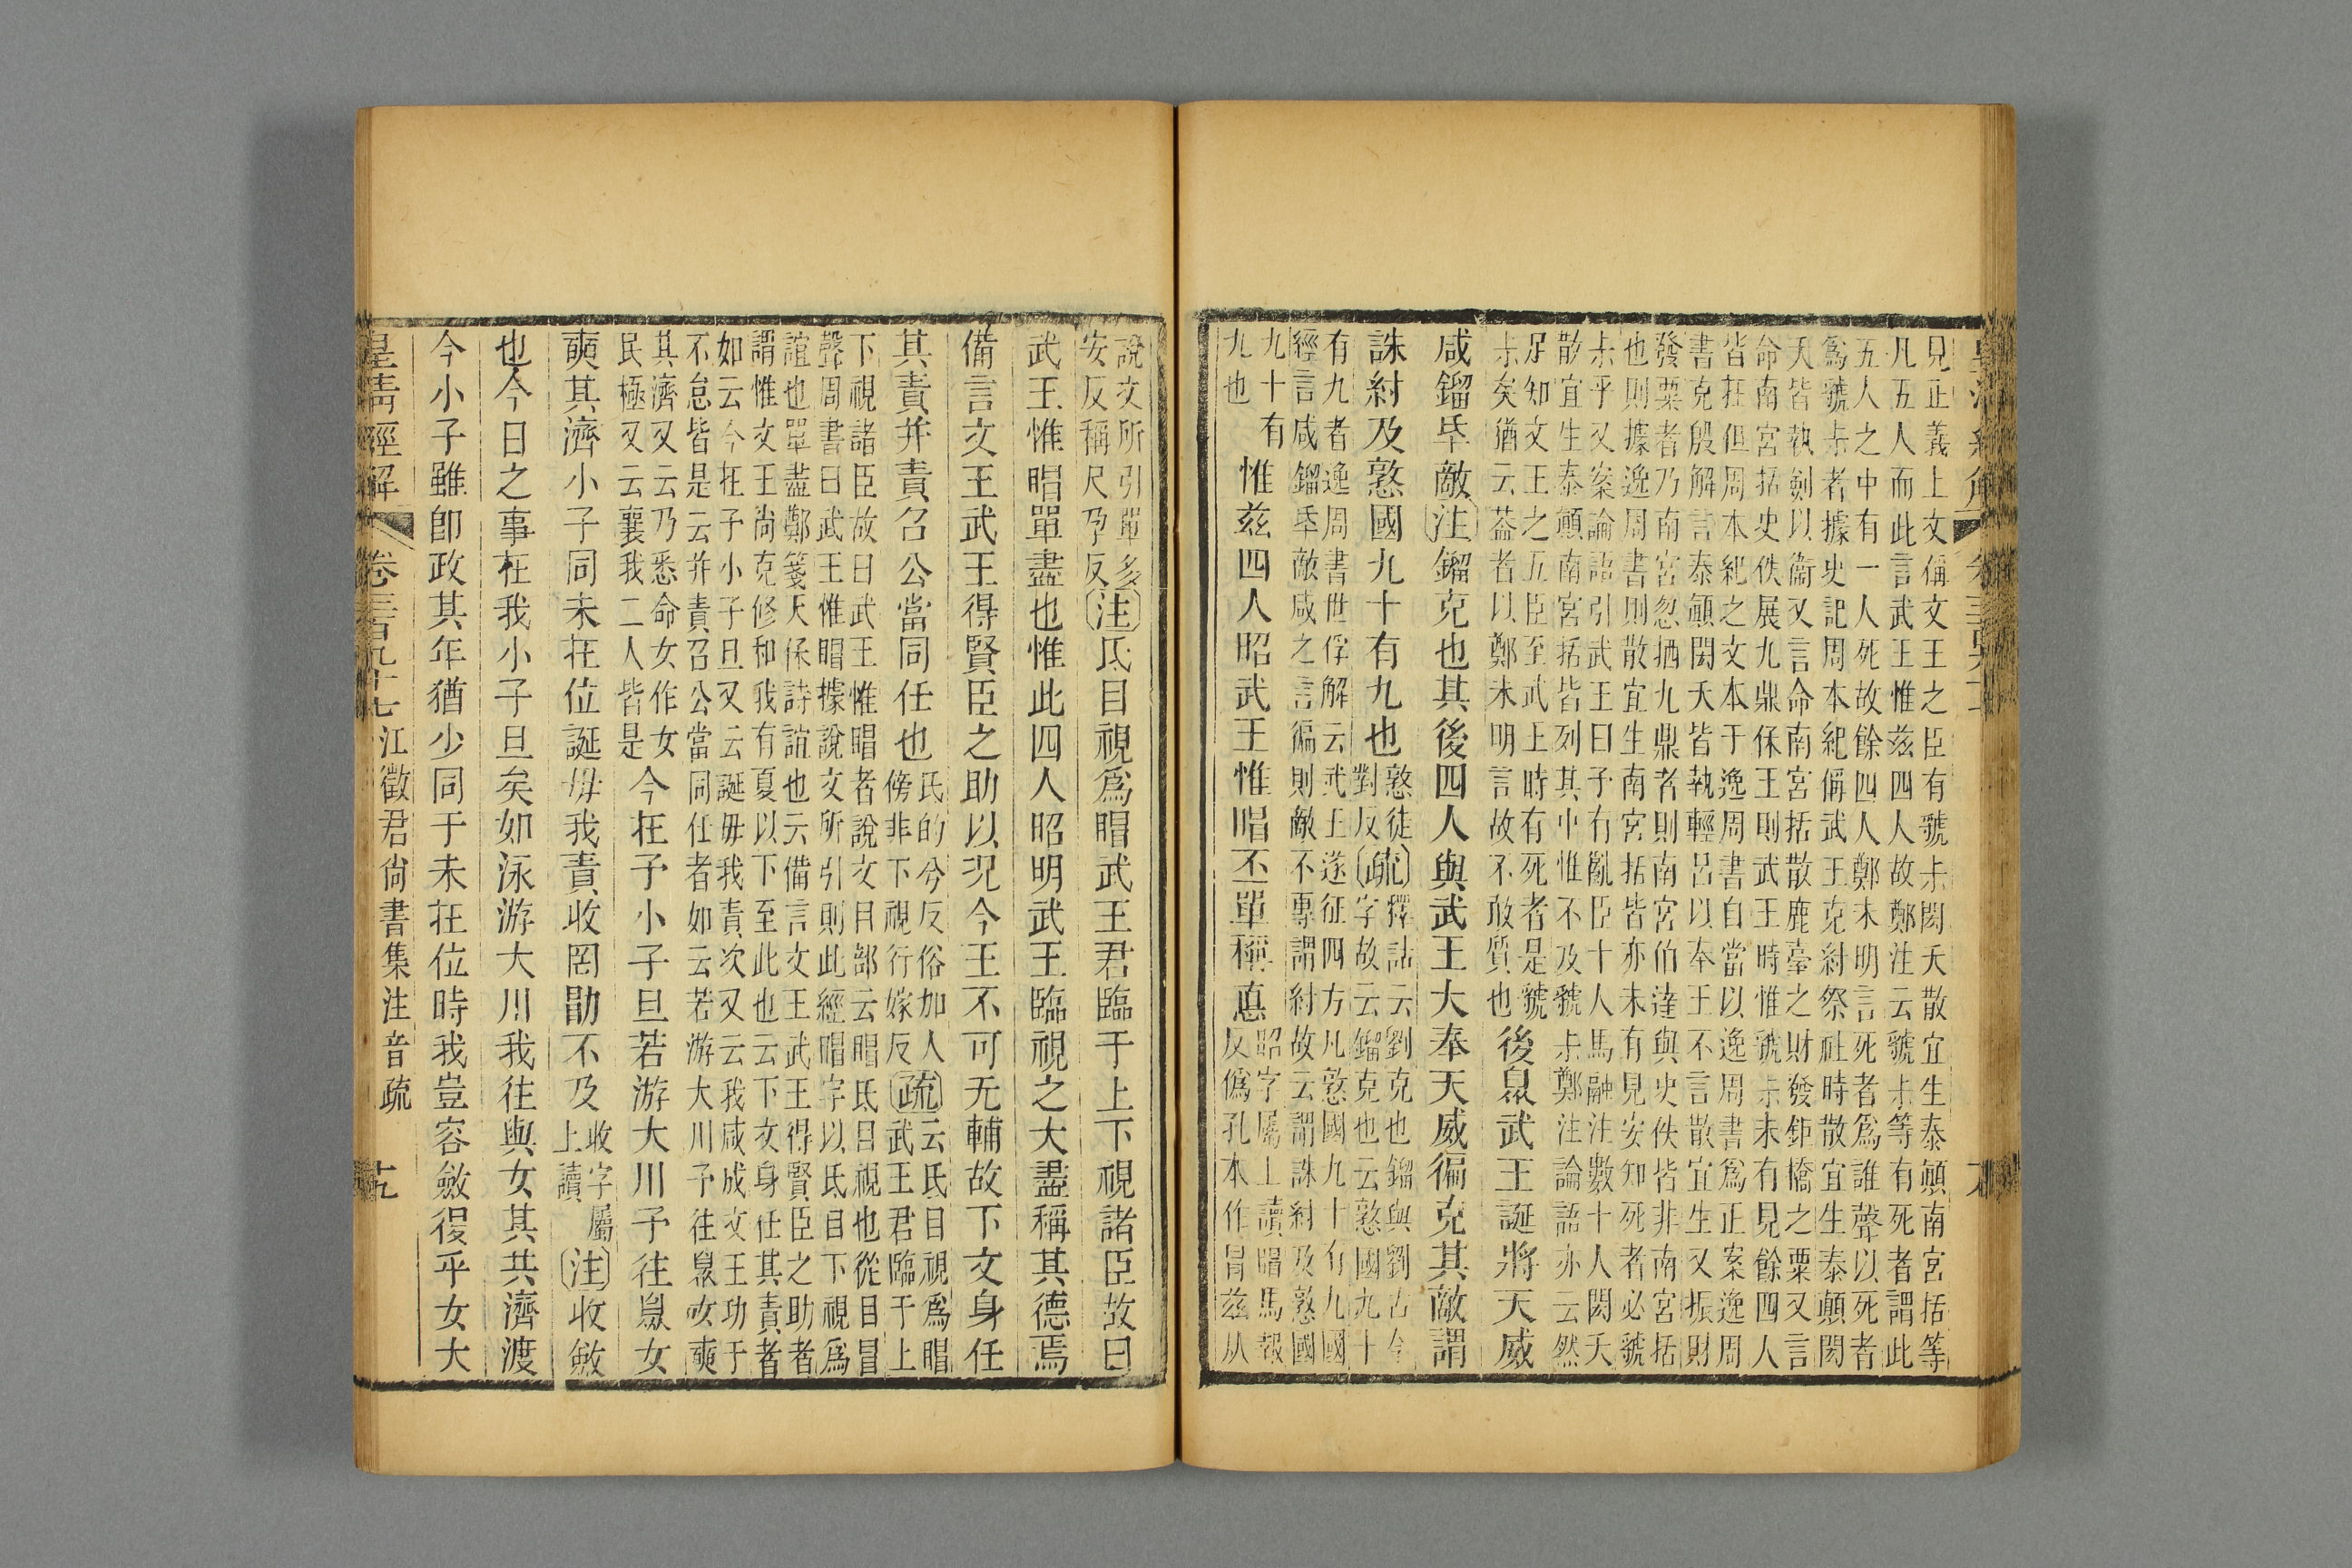 見正義上文偁文王之臣有虢尗閎夭散宜生泰顚南宮括等
凡五人而此言武王惟兹四人故鄭注云虢尗等有死者謂此
五人之中有一人死故餘四人鄭未明言死者爲誰聲以死者
爲虢尗者據史記周本紀偁武王克紂祭社時散宜生泰顛閎
夭皆執劍以衞又言命南宮括散鹿臺之財發鉅橋之粟又言
命南宮括史佚展九鼎保王則武王時惟虢尗未有見餘四人
皆在但周本紀之文本于逸周書自當以逸周書爲正案逸周
書克殷解言泰顚閎夭皆執輕呂以奉王不言散宜生又振財
發粟者乃南宮忽䙴九鼎者則南宮伯達與史佚皆非南宮括
也則據逸周書則散宜生南宮括皆亦未有見安知死者必虢
尗乎又案論語引武王曰予有亂臣十人馬融注數十人閎夭
散宜生泰顚南宮括皆列其中惟不及虢尗鄭注論語亦云然
足知文王之五臣至武王時有死者是虢
尗矣猶云葢者以鄭未明言故不敢質也
後臮武王誕將天威
咸鎦氒敵注鎦克也其後四人與武王大奉天威徧克其敵謂
誅紂及憝國九十有九也
憝徒
對反
疏
釋詁云劉克也鎦與劉古今
字故云鎦克也云憝國九十
有九者逸周書世俘解云武王遂征四方凡憝國九十有九國
經言咸鎦氒敵咸之言徧則敵不專謂紂故云謂誅紂及憝國
九十有
九也
惟兹四人昭武王惟睸丕單稱悳
昭字屬上讀睸馬報
反僞孔本作冒兹从
說文所引單多
安反稱尺孕反
注氐目視爲睸武王君臨于上下視諸臣故曰
武王惟睸單盡也惟此四人昭明武王臨視之大盡稱其德焉
備言文王武王得賢臣之助以況今王不可无輔故下文身任
其責并責召公當同任也
氐的兮反俗加人
傍非下視行嫁反
疏
云氐目視爲睸
武王君臨于上
下視諸臣故曰武王惟睸者說文目部云睸氐目視也從目冒
聲周書曰武王惟睸據說文所引則此經睸字以氐目下視爲
誼也單盡鄭箋天保詩誼也云備言文王武王得賢臣之助者
謂惟文王尙克修和我有夏以下至此也云下文身任其責者
如云今在予小子旦又云誕毋我責次又云我咸成文王功于
不怠皆是云并責召公當同任者如云若游大川予往臮女奭
其濟又云乃悉命女作女
民極又云襄我二人皆是
今在予小子旦若游大川予往臮女
奭其濟小子同未在位誕毋我責收罔勖不及
收字屬
上讀
注收斂
也今日之事在我小子旦矣如泳游大川我往與女其共濟渡
今小子雖卽政其年猶少同于未在位時我豈容斂𢓴乎女大
皇清經解
卷三百九十七
江徵君尙書集注音疏